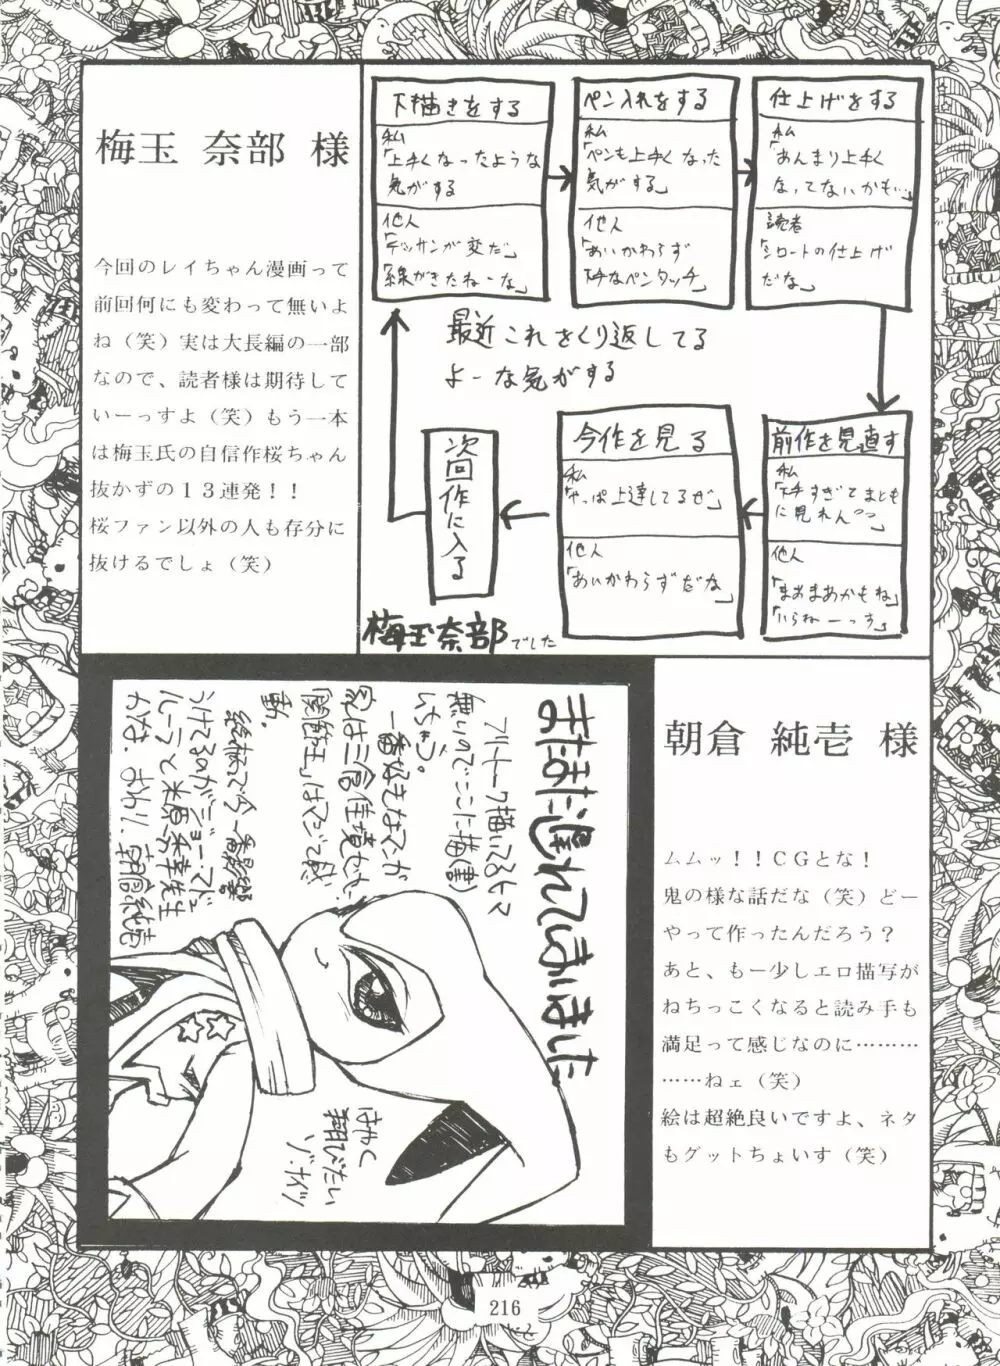 梅玉 奈部 様
今回のレイちゃん漫画って
前回何にも変わって無いよ
ね（笑）実は大長編の一部
なので、読者様は期待して
いーっすよ（笑）もう一本
は梅玉氏の自信作桜ちゃん
抜かずの１３連発！！
桜ファン以外の人も存分に
抜けるでしょ（笑）
下描きをする
私
「上手くなったような
気がする
他人
「デッサンが変だ」
「線がきたねーな」
ペン入れをする
私
「ペンも上手くなった
気がする」
他人
「あいかわらず
なペンタッチ」
仕上げをする
私
「あんまり上手く
なってないかも…」
読者
「シロートの仕上げ
だな」
最近これをくり返してる
よーな気がする
前作を見直す
私
すぎてまとも
に見れん
他人
「まあまあかもね」
「いらねーっす」
今作を見る
私
「やっぱ上達してるぜ」
他人
「あいかわらずだな」
次回作に入る
梅玉奈部でした
朝倉 純壱 様
ムムッ！！ＣＧとな！
鬼の様な話だな（笑）どー
やって作ったんだろう？
あと、もー少しエロ描写が
ねちっこくなると読み手も
満足って感じなのに………
……ねェ（笑）
絵は超絶良いですよ、ネタ
もグットちょいす（笑）
またまた遅れてしまいました
フリートーク描いてるヒマ
無いのでここに描(書)
いちゃう。
一番好きなマンガ
動。
かな。おわり。朝倉純壱
はやく
翔びたい
ゾ・ナイツ
216